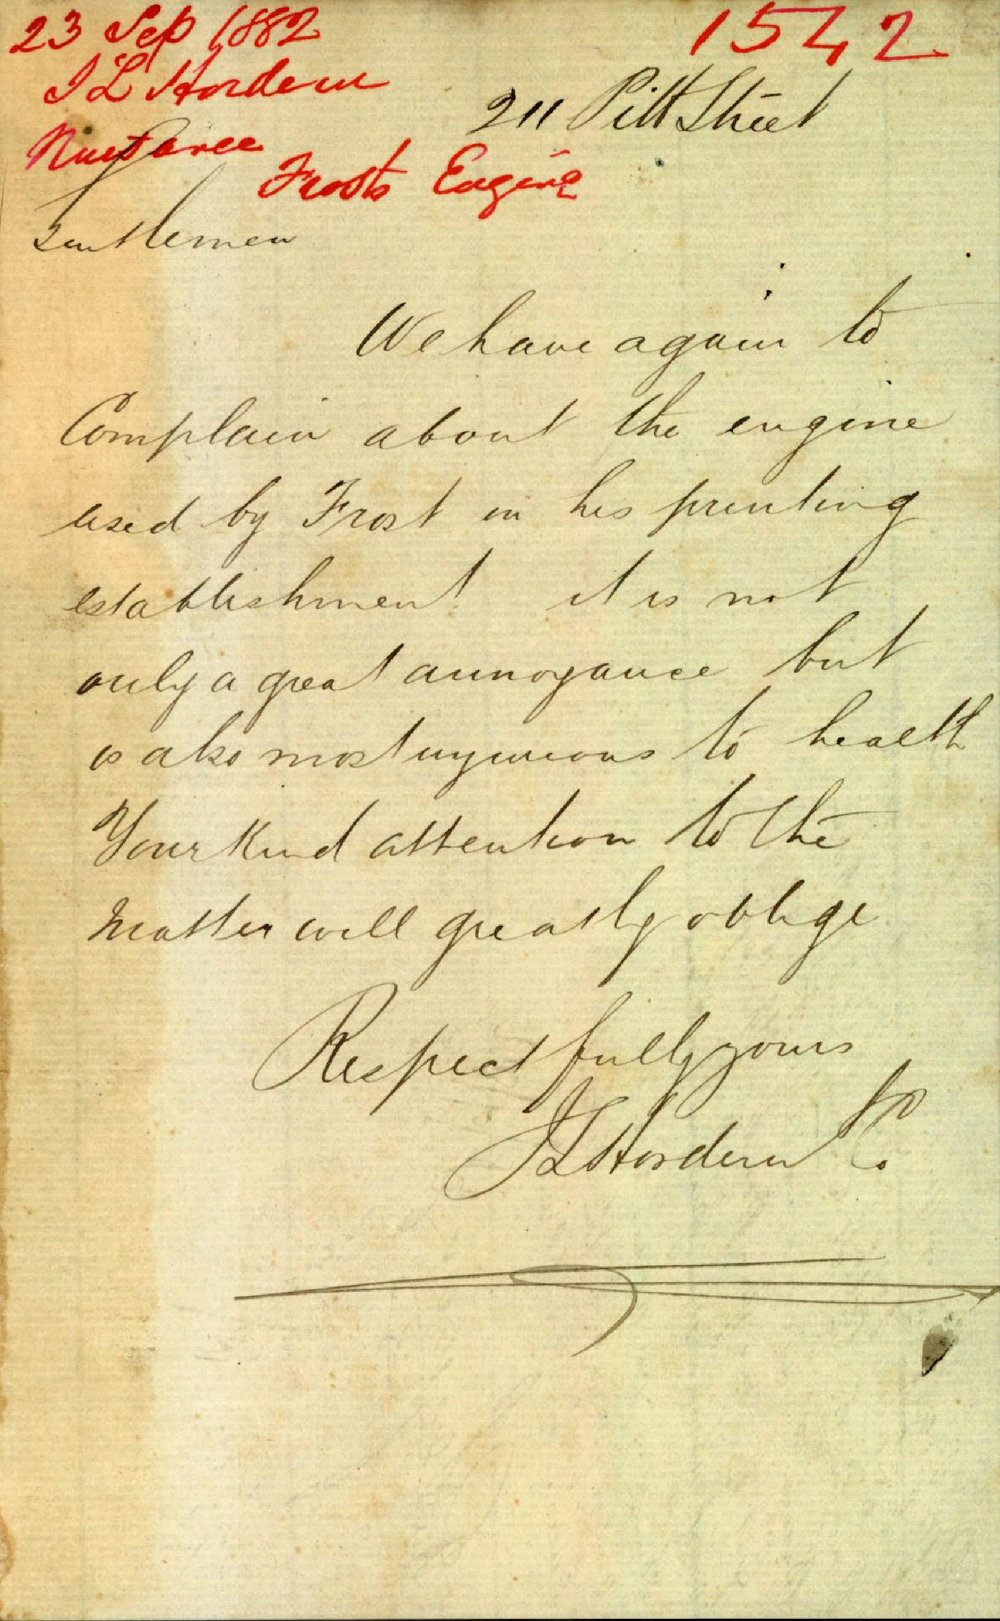 23 Sep 1882
1542
J L Hordern
211 Pitt Street
Nuisance
Frosts Engine
Gentlemen
We have again to
Complain about the engine
used by Frost in his printing
establishment it is not
only a great annoyance but
is also most injurious to health
Your Kind attention to the
Matter will greatly oblige
Respectfully yours
J L Hordern & Co